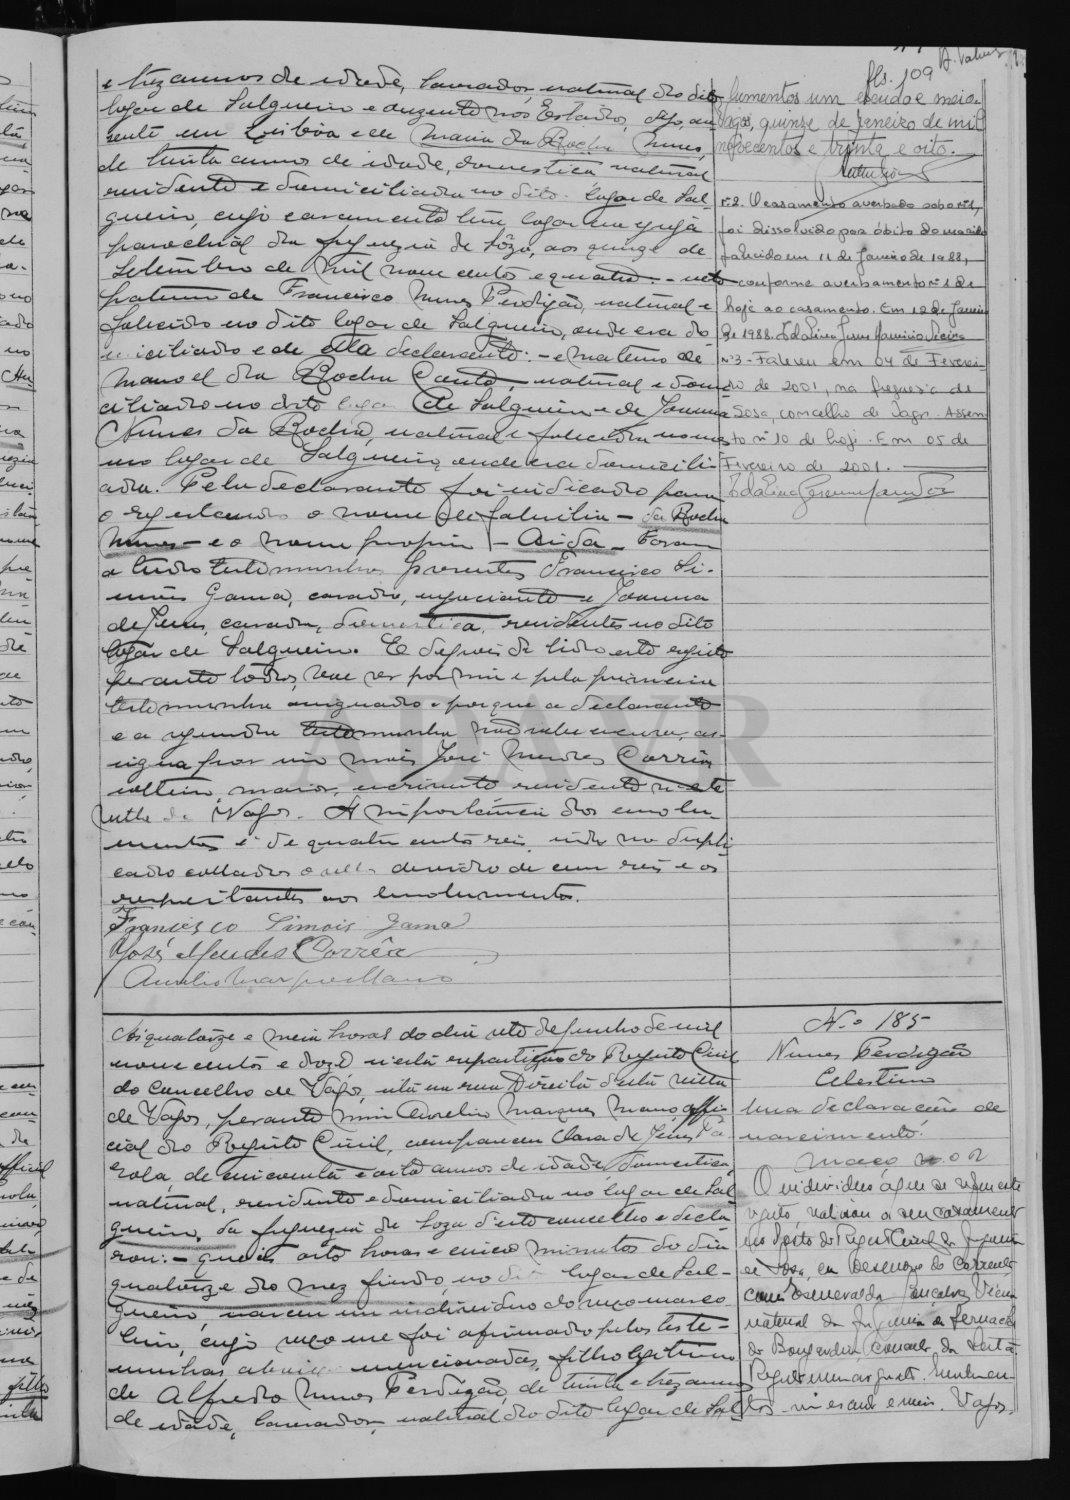 fls. 109
e trez annos de idade, lavrador, natural do dito
logar de Salgueiro e auzente nos Estados, digo, au-
zente em Lisbôa e de Maria da Rocha Nunes,
de trinta annos de idade, domestica, natural
rezidente e domiciliada no dito logar de Sal-
gueiro, cujo casamento teve logar na egreja
parochial da freguezia de Sôza, aos quinze de
Setembro de mil nove centos e quatro. - neto
paterno de Francisco Nunes Perdigão, natural e
falecido no dito logar de Salgueiro, onde era do-
miciliado e de ella declarante: - e materno de
Manoel da Rocha Couto, natural e domi-
ciliado no dito logar de Salgueiro e de Joanna
Nunes da Rocha, natural e falecida no mes-
mo logar de Salgueiro, onde era domicili-
ada. Pela declarante foi indicado para
o registando o nome de familia - da Rocha
Nunes - e o nome proprio - Aida - Foram
a tudo testemunhas presentes Francisco Si-
mões Gama, casado, negociante e Joanna
de Jesus, casada, domestica, residentes no dito
logar de Salgueiro. E depois de lido este registo
perante todos, vae ser por mim e pela primeira
testemunha assignado e porque a declarante
e a segunda testemunha não sabe escrever, as-
signa por mim mais José Mendes Corrêa
solteiro, maior, escrevente residente n'esta
villa de Vagos. A importancia dos emolu-
mentos é de quatro centos reis, indo no dupli-
cado collados o sello devido de cem reis e os
respeitantes aos emolumentos.
Francisco Simois Gama
José Mendes Corrêa
lumentos um escudo e meio.
Vagos, quinze de Janeiro de mil
novecentos e trinta e oito.
nº2. O casamento averbado sob o nº1,
foi dissolvido por óbito do marido
falecido em 11 de Janeiro de 1988,
conforme averbamento nº 1 de
hoje ao casamento. Em 12 de Janeiro
de 1988.
nº3 - Faleceu em 04 de Feverei-
ro de 2001, na freguesia de
Sosa, concelho de Vagos. Assen-
to nº 10 de hoje. Em 05 de
Fevereiro de 2001.
ADAVR
Ás quatorze e meia horas do dia sete de Junho de mil
nove centos e doze, n'esta repartição do Registo Civil
do Concelho de Vagos, sita na rua Direita d'esta villa
de Vagos, perante mim Aurelio Marques Mano, offi-
cial do Registo Civil, compareceu Clara de Jesus Pa-
rola, de cincoenta e oito annos de idade, domestica,
natural, residente e domiciliada no logar de Sal-
gueiro, da freguezia de Soza d'este concelho e decla-
rou: - que ás oito horas e cinco minutos do dia
quatorze do mez findo, no dito logar de Sal-
gueiro, nasceu um individuo do sexo mascu-
lino, cujo sexo me foi afirmado pelas teste-
munhas abaixo mencionadas, filho legitimo
de Alfredo Nunes Perdigão, de trinta e trez annos
de idade, lavrador, natural do dito logar de Sal-
N.o 185
Nunes Perdigão
Celestino
Uma declaração de
nascimento.
Maço n.o 2
O individuo a que se refere este
registo, realisou o seu casamento
no Posto do Registo Civil da freguesia
de Sosa, em
com Esmeralda Gonçalves Vieira
natural da freguesia de Cernache
do Bomjardim concelho da Sertã
mentos um escudo e meio. Vagos,